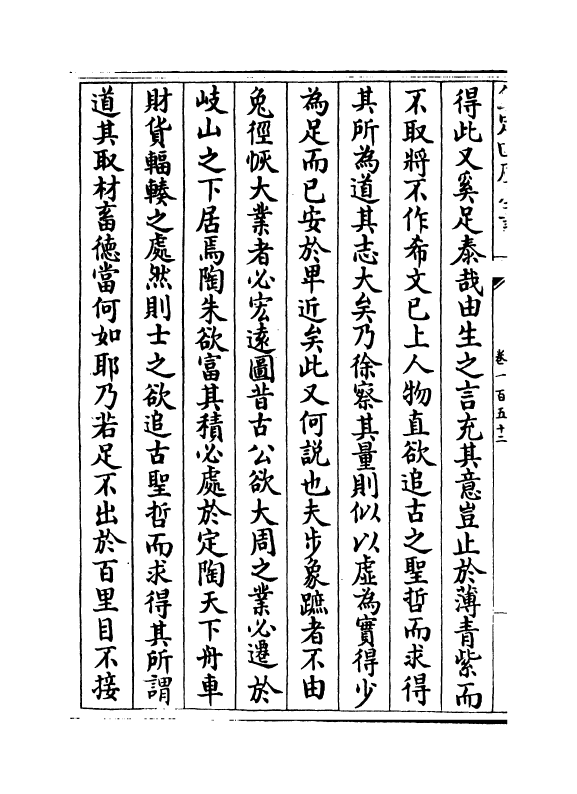 卷一百五十二
得此又奚足泰哉由生之言充其意豈止於薄青紫而
不取將不作希文已上人物直欲追古之聖哲而求得
其所為道其志大矣乃徐察其量則似以虛為實得少
為足而已安於卑近矣此又何説也夫步象蹠者不由
兔徑恢大業者必宏逺圖昔古公欲大周之業必遷於
岐山之下居焉陶朱欲富其積必處於定陶天下舟車
財貨輻輳之處然則士之欲追古聖哲而求得其所謂
道其取材畜徳當何如耶乃若足不出於百里目不接